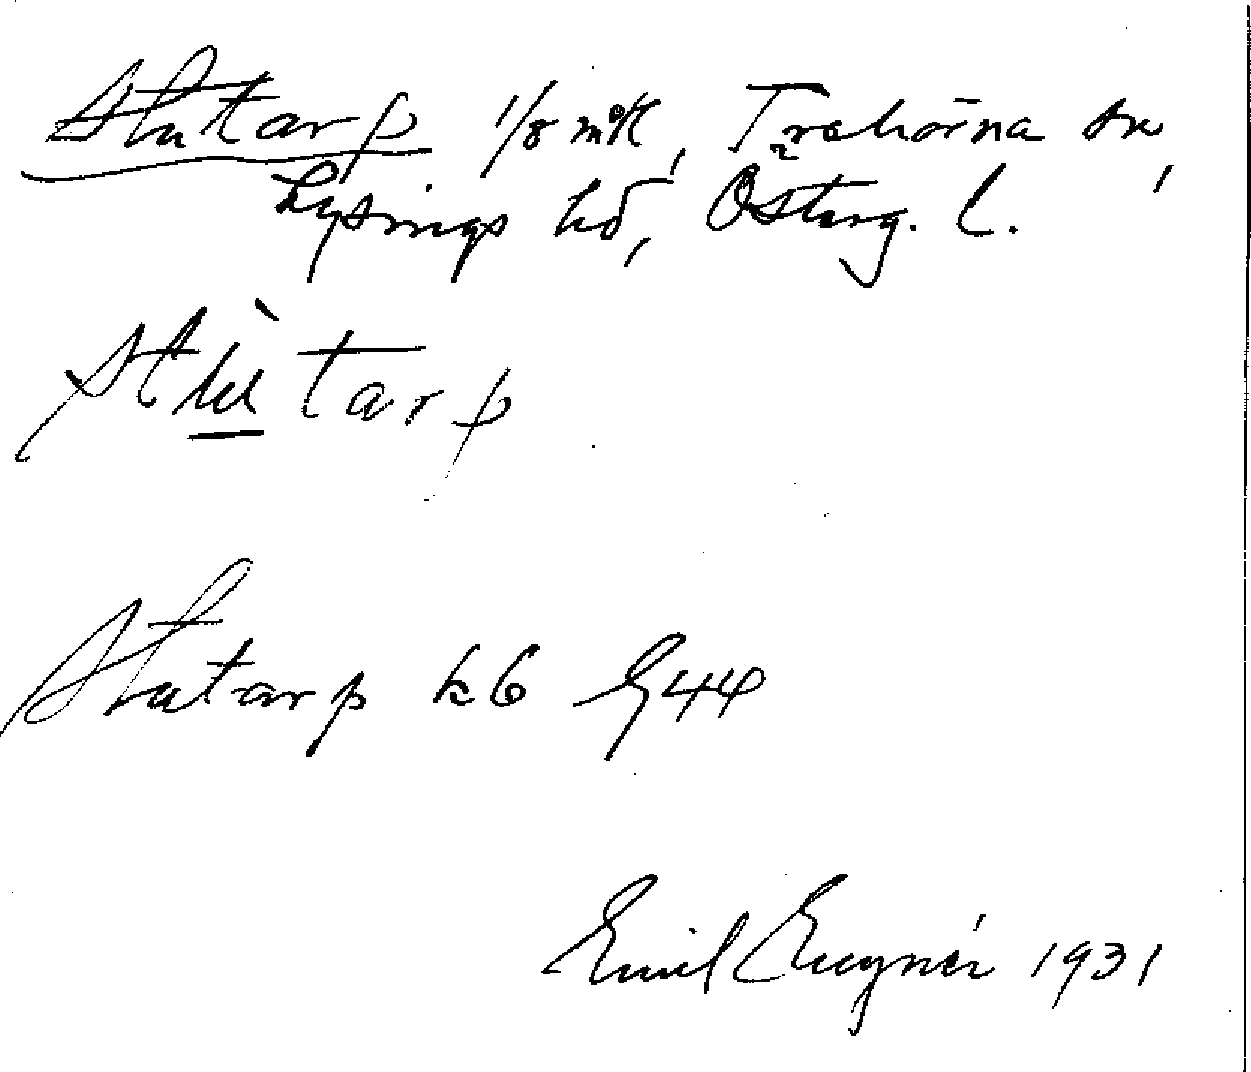 Stutarp 1/8 mtl, Trehörna sn,
Lysings hd, Österg. l.
Stutarp
Stutarp k6 G44
Emil 1931